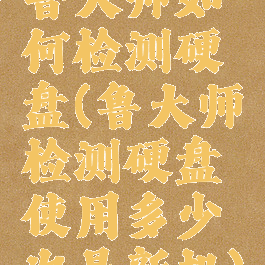 鲁大师如
何检测硬
盘(鲁大师
检测硬盘
使用多少
次是新机)